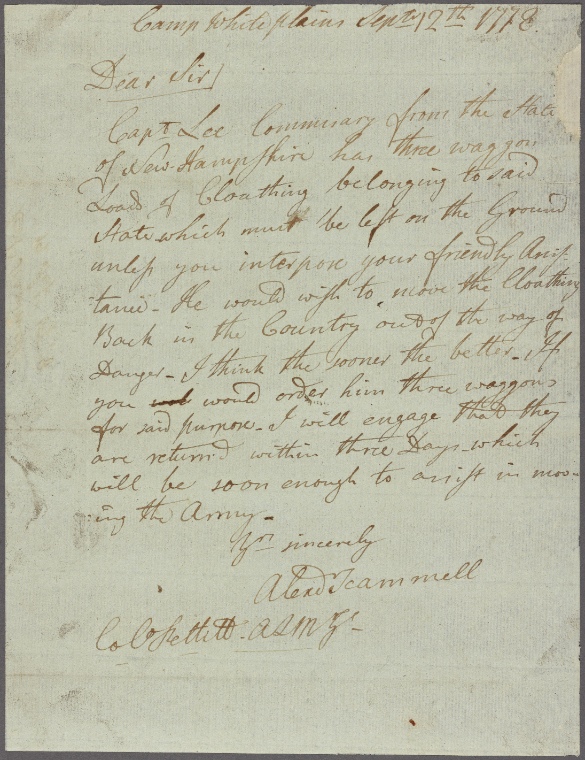 Camp White plains Septr 12th 1778.
Dear Sir/
Capt Lee Commisary from the State
of New-Hampshire has three waggon
Load of Cloathing belonging to said
State which must be left on the Ground
unless you interpose your friendly Assis-
tance - He would wish to move the Cloathing
Back in the Country out of the way of
Danger - I think the sooner the better - If
you would order him three waggons
for said purpose - I will engage that they
are return'd within three Days - which
will be soon enough to assist in mov-
ing the Army -
Yrs sincerely
Alexd Scammell
Colo Pettitt - A Q M Gl -